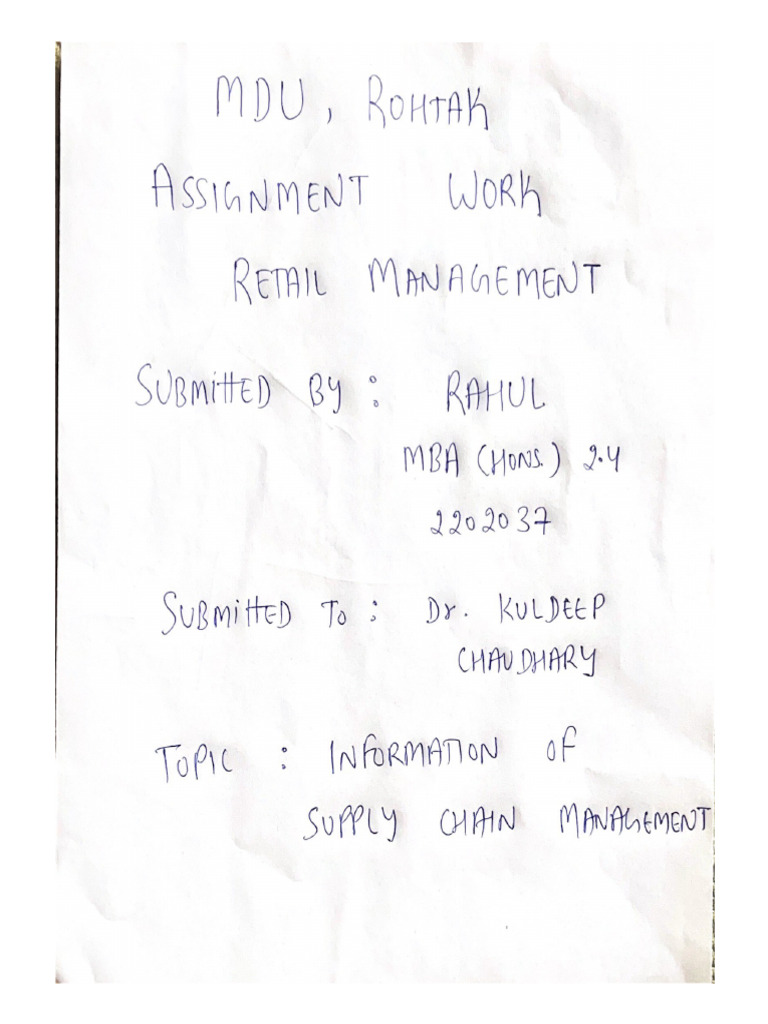 MDU, ROHTAK
ASSIGNMENT WORK
RETAIL MANAGEMENT
SUBMITTED BY : RAHUL
MBA (HONS.) 2.4
2202037
SUBMITTED TO : Dr. KULDEEP
CHAUDHARY
TOPIC : INFORMATION OF
SUPPLY CHAIN MANAGEMENT